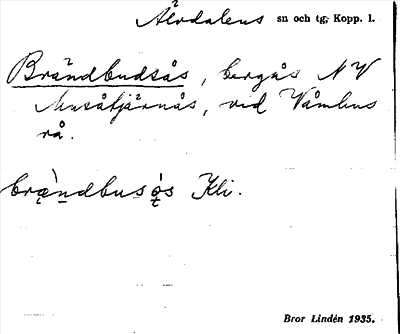 Älvdalens sn och tg; Kopp. l.
Brändbudsås, bergås NV
Musåtjärnås, vid Våmhus
rå.
brä̀ndbusǻs Kli.
Bror Lindén 1935.